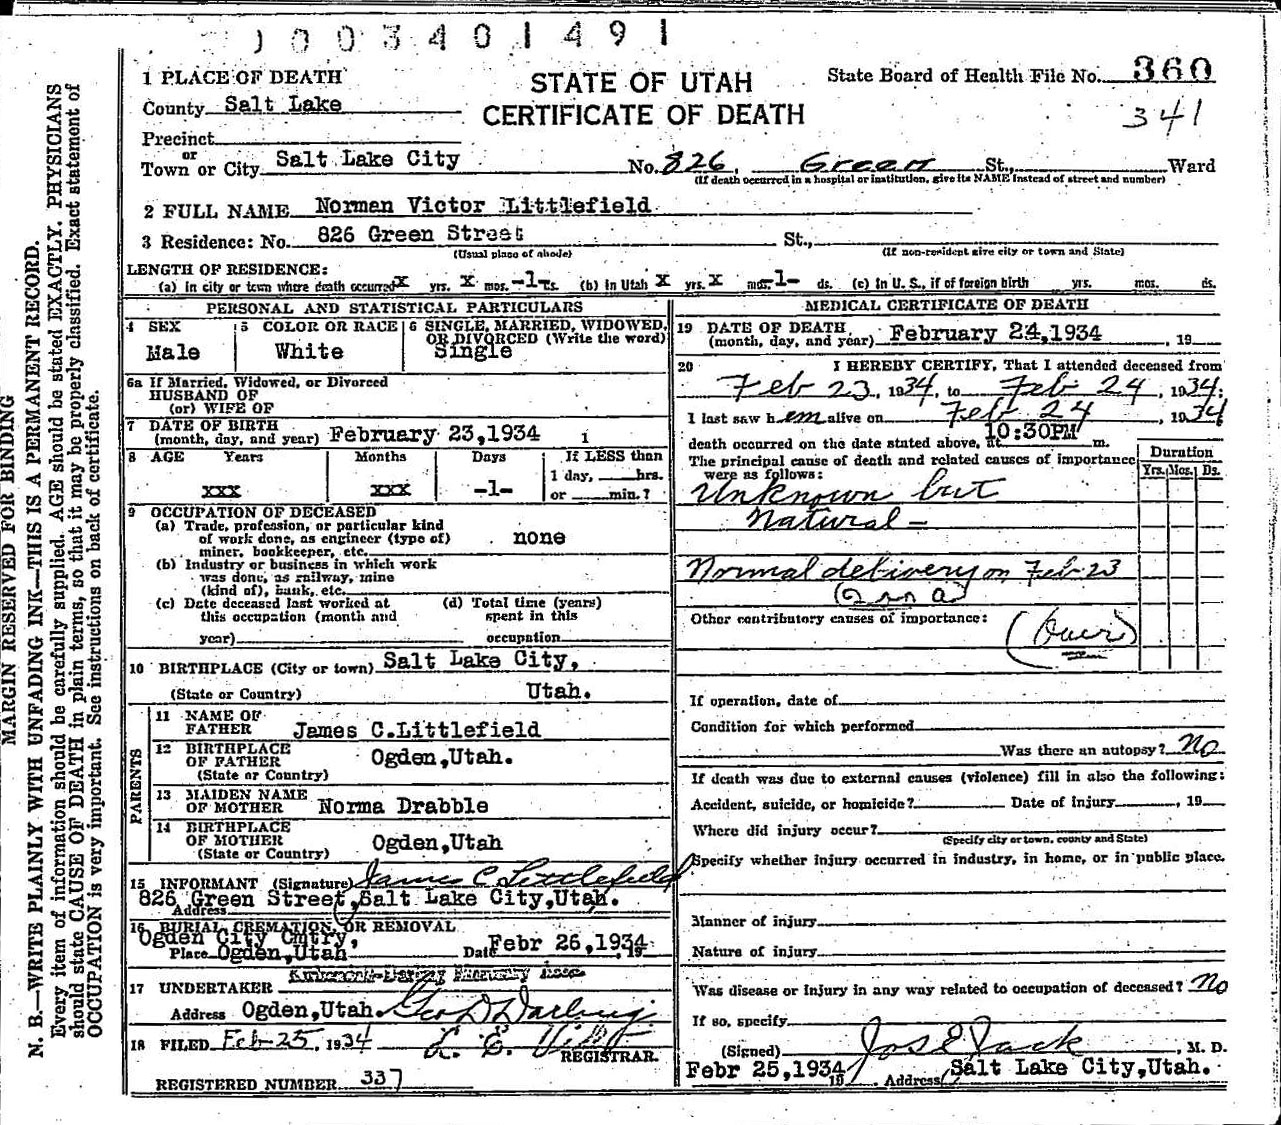 0003401491
1 PLACE OF DEATH
STATE OF UTAH
CERTIFICATE OF DEATH
State Board of Health File No. 360
341
County Salt Lake
Precinct
or
Town or City Salt Lake City No. 826, Green St., Ward
(If death occurred in a hospital or institution, give its NAME instead of street and number)
2 FULL NAME Norman Victor Littlefield
3 Residence: No. 826 Green Street St.,
(Usual place of abode) (If non-resident give city or town and State)
LENGTH OF RESIDENCE:
(a) In city or town where death occurred x yrs. x mos. -1- ds. (b) In Utah x yrs. x mos. -1- ds. (c) In U. S., if of foreign birth yrs. mos. ds.
PERSONAL AND STATISTICAL PARTICULARS
4 SEX 5 COLOR OR RACE 6 SINGLE, MARRIED, WIDOWED, OR DIVORCED (Write the word)
Male White Single
6a If Married, Widowed, or Divorced
HUSBAND OF
(or) WIFE OF
7 DATE OF BIRTH
(month, day, and year) February 23,1934
8 AGE Years Months Days If LESS than
1 day, hrs.
or min.?
xxx xxx -1-
9 OCCUPATION OF DECEASED
(a) Trade, profession, or particular kind
of work done, as engineer (type of)
miner, bookkeeper, etc. none
(b) Industry or business in which work
was done, as railway, mine
(kind of), bank, etc.
(c) Date deceased last worked at
this occupation (month and
year)
(d) Total time (years)
spent in this
occupation
10 BIRTHPLACE (City or town) Salt Lake City,
(State or Country) Utah.
PARENTS
11 NAME OF
FATHER James C.Littlefield
12 BIRTHPLACE
OF FATHER Ogden,Utah.
(State or Country)
13 MAIDEN NAME
OF MOTHER Norma Drabble
14 BIRTHPLACE
OF MOTHER Ogden,Utah
(State or Country)
15 INFORMANT (Signature) James C Littlefield
826 Green Street,Salt Lake City,Utah.
Address
16 BURIAL, CREMATION, OR REMOVAL
Ogden City Cmtry,
Place Ogden,Utah Date Febr 26,1934 19
17 UNDERTAKER
Address Ogden,Utah. Geo D Darling
18 FILED Feb-25, 1934
REGISTRAR.
REGISTERED NUMBER 337
MEDICAL CERTIFICATE OF DEATH
19 DATE OF DEATH
(month, day, and year) February 24,1934 , 19
20 I HEREBY CERTIFY, That I attended deceased from
Feb 23, 1934, to Feb 24, 1934;
I last saw h em alive on Feb 24 1934
10:30PM
death occurred on the date stated above, at m.
The principal cause of death and related causes of importance
were as follows:
Duration
Yrs. Mos. Ds.
Unknown but
Natural -
Normal delivery on Feb-23
Other contributory causes of importance:
(over)
If operation, date of
Condition for which performed
Was there an autopsy? No
If death was due to external causes (violence) fill in also the following:
Accident, suicide, or homicide? Date of injury , 19
Where did injury occur?
(Specify city or town, county and State)
Specify whether injury occurred in industry, in home, or in public place.
Manner of injury
Nature of injury
Was disease or injury in any way related to occupation of deceased? No
If so, specify
(Signed) Jos E Jack , M. D.
Febr 25,1934 19 . Address Salt Lake City,Utah.
MARGIN RESERVED FOR BINDING
N. B.—WRITE PLAINLY WITH UNFADING INK—THIS IS A PERMANENT RECORD.
Every item of information should be carefully supplied. AGE should be stated EXACTLY. PHYSICIANS
should state CAUSE OF DEATH in plain terms, so that it may be properly classified. Exact statement of
OCCUPATION is very important. See instructions on back of certificate.